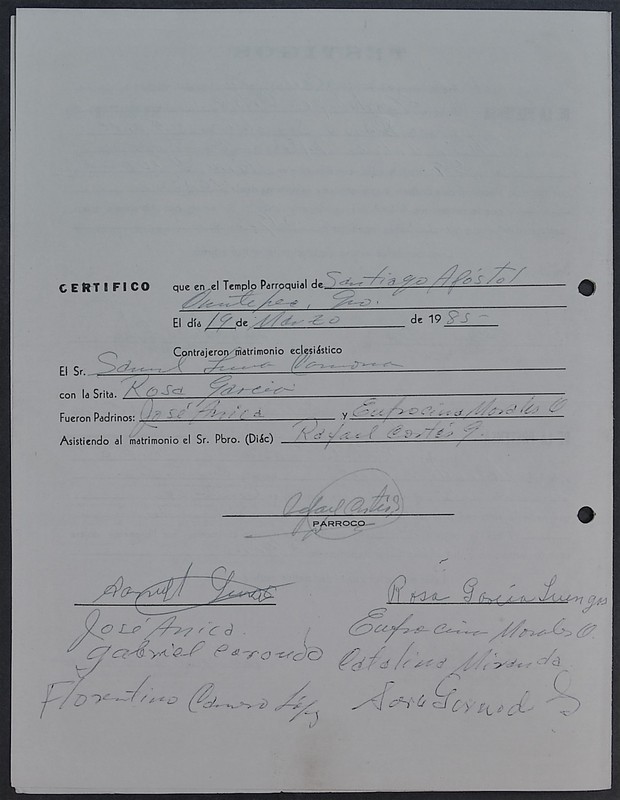 CERTIFICO que en el Templo Parroquial de Santiago Apóstol
Gro.
El día 19 de Marzo de 1985-
Contrajeron matrimonio eclesiástico
El Sr. Samuel Luna
con la Srita. Rosa Garcia
Fueron Padrinos: José Anica y Eufrocina Morales O
Asistiendo al matrimonio el Sr. Pbro. (Diác) Rafael Cortés G.
Rafael Cortés
PARROCO
Samuel Luna Rosa García
José Anica. Eufrocina Morales O.
Gabriel Catalina Miranda
Florentino